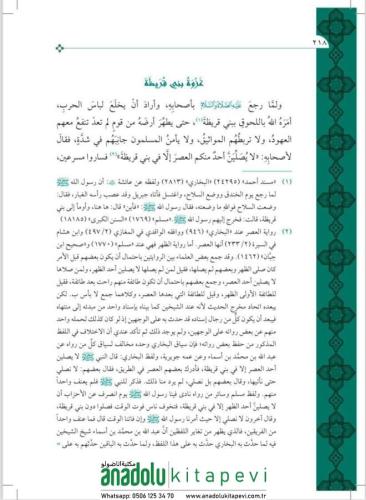 ٢١٨
غَزْوَةُ بَنِي قُرَيْظَةَ
ولمَّا رجعَ عَلَيْهِ الصَّلَاةُ وَالسَّلَامُ بأصحابِهِ، وأرادَ أنْ يخلَعَ لباسَ الحربِ،
أمَرَهُ اللهُ باللحوقِ ببني قريظةَ(١)، حتى يطهِّرَ أرضَهُ من قومٍ لم تعدْ تنفعُ معهم
العهودُ، ولا تربطُهم المواثيقُ، ولا يأمنُ المسلمون جانبَهُم في شدَّةٍ، فقالَ
لأصحابِهِ: «لا يُصَلِّيَنَّ أحدٌ منكم العصرَ إلَّا في بني قريظةَ»(٢) فساروا مسرعين،
(١) «مسند أحمد» (٢٤٢٩٥) «البخاري» (٢٨١٣) ولفظه عن عائشة: أن رسول الله ﷺ
لما رجع يوم الخندق ووضع السلاح، واغتسل فأتاه جبريل وقد عصب رأسه الغبار، فقال:
وضعت السلاح فو الله ما وضعته، فقال رسول الله ﷺ: «فأين» قال: ها هنا، وأومأ إلى بني
قريظة، قالت: فخرج إليهم رسول الله ﷺ، «مسلم» (١٧٦٩) «السنن الكبرى» (١٨١٨٥)
(٢) رواية العصر عند «البخاري» (٩٤٦) ووافقه الواقدي في المغازي (٤٩٧/٢) وابن هشام
في السيرة (٢٣٣/٢) أنها العصر. أما رواية الظهر فهي عند «مسلم» (١٧٧٠) «وصحيح ابن
حِبَّان» (١٤٦٢). وقد جمع بعض العلماء بين الروايتين باحتمال أن يكون بعضهم قبل الأمر
كان صلى الظهر وبعضهم لم يصلها، فقيل لمن لم يصلها لا يصلين أحد الظهر، ولمن صلاها
لا يصلين أحد العصر، وجمع بعضهم باحتمال أن تكون طائفة منهم راحت بعد طائفة، فقيل
للطائفة الأولى الظهر، وقيل للطائفة التي بعدها العصر، وكلاهما جمع لا بأس ب. لكن
يبعده اتحاد مخرج الحديث لأنه عند الشيخين كما بيناه بإسناد واحد من مبدئه إلى منتهاه
فيبعد أن يكون كل من رجال إسناده قد حدث به على الوجهين إذ لو كان كذلك لحمله واحد
منهم عن بعض رواته على الوجهين، ولم يوجد ذلك ثم تأكد عندي أن الاختلاف في اللفظ
المذكور من حفظ بعض رواته؛ فإن سياق البخاري وحده مخالف لسياق كلّ من رواه عن
عبد الله بن محمَّد بن أسماء وعن عمه جويرية، ولفظ البخاري: قال النبي ﷺ لا يصلين
أحد العصر إلا في بني قريظة، فأدرك بعضهم العصر في الطريق، فقال بعضهم: لا نصلي
حتى نأتيها، وقال بعضهم بل نصلي، لم يرد منا ذلك. فذكر للنبي ﷺ فلم يعنف واحداً
منهم. ولفظ مسلم وسائر من رواه نادى فينا رسول الله ﷺ يوم انصرف عن الأحزاب أن
لا يصلينَّ أحد الظهر إلا في بني قريظة، فتخوف ناس فوت الوقت فصلوا دون بني قريظة،
وقال آخرون لا نصلي إلا حيث أمرنا رسول الله ﷺ وإن فاتنا الوقت قال فما عنف واحداً
من الفريقين، فالذي يظهر من تغاير اللفظين أنَّ عبد الله بن محمَّد بن أسماء شيخ الشيخين
فيه لما حدَّث به البخاري حدَّث به على هذا اللفظ، ولما حدَّث به الباقين حدَّثهم به على =
مكتبة اناضولو
anadolu kitapevi
Whatsapp: 0506 125 34 70 www.anadolukitapevi.com